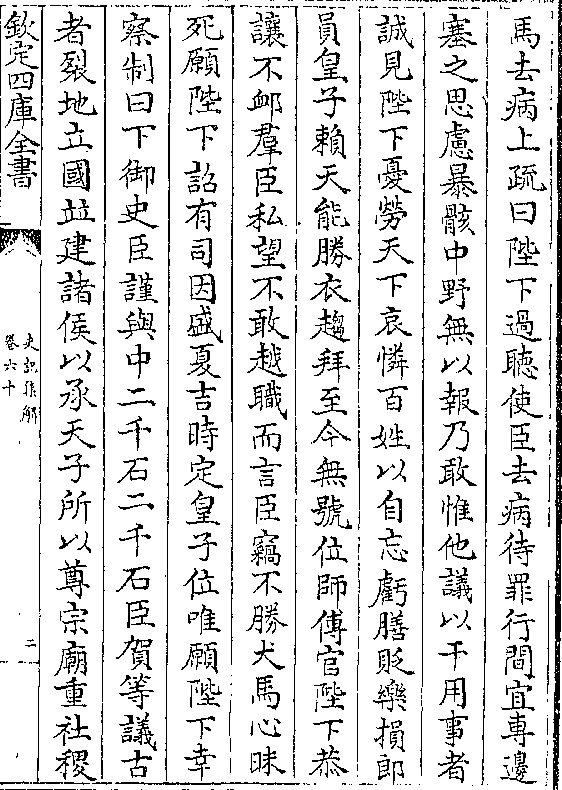 馬去病上疏曰陛下過聽使臣去病待罪行間宜專邊
塞之思慮暴骸中野無以報乃敢惟他議以干用事者
誠見陛下憂勞天下哀憐百姓以自忘虧膳貶樂損郎
員皇子賴天能勝衣趨拜至今無號位師傅官陛下恭
讓不衈羣臣私望不敢越職而言臣竊不勝犬馬心昧
死願陛下詔有司因盛夏吉時定皇子位唯願陛下幸
察制曰下御史臣謹與中二千石二千石臣賀等議古
者裂地立國並建諸侯以承天子所以尊宗廟重社稷
欽定四庫全書
史記集解
卷六十
二